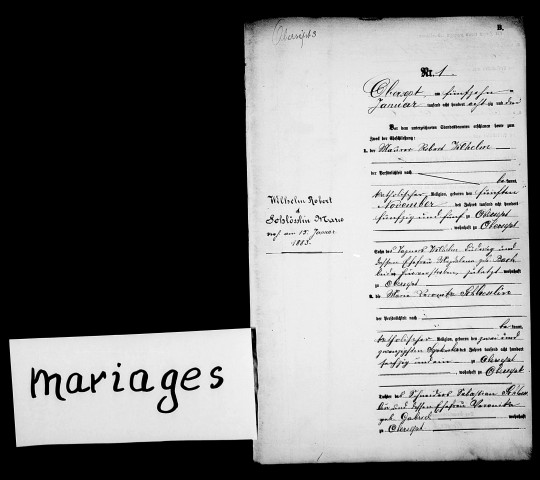 B.
Nr. 1.
Obersept am fünfzehnten
Januar tausend acht hundert achtzig und drei
Vor dem unterzeichneten Standesbeamten erschienen heute zum
Zweck der Eheschließung:
1. der Maurer Robert Wilhelm
der Persönlichkeit nach
be kannt,
katholischer Religion, geboren den fünften
November des Jahres tausend acht hundert
fünfzig und fünf zu Obersept
, wohnhaft zu Obersept
Sohn des Tagners Wilhelm und
dessen Ehefrau Magdalena geb.
beide wohnhaft
zu Obersept
2. die Maria Veronika Schlösslin
der Persönlichkeit nach
be kannt,
katholischer Religion, geboren den zwei und
zwanzigsten September des Jahres tausend acht hundert
sechzig und ein zu Obersept
, wohnhaft zu Obersept
Tochter des Schneiders Sebastian Schlöss-
lin und dessen Ehefrau Veronika
geb. wohnhaft
zu Obersept
Wilhelm Robert
&
Schlösslin Marie
am 15. Januar
1883.
mariages